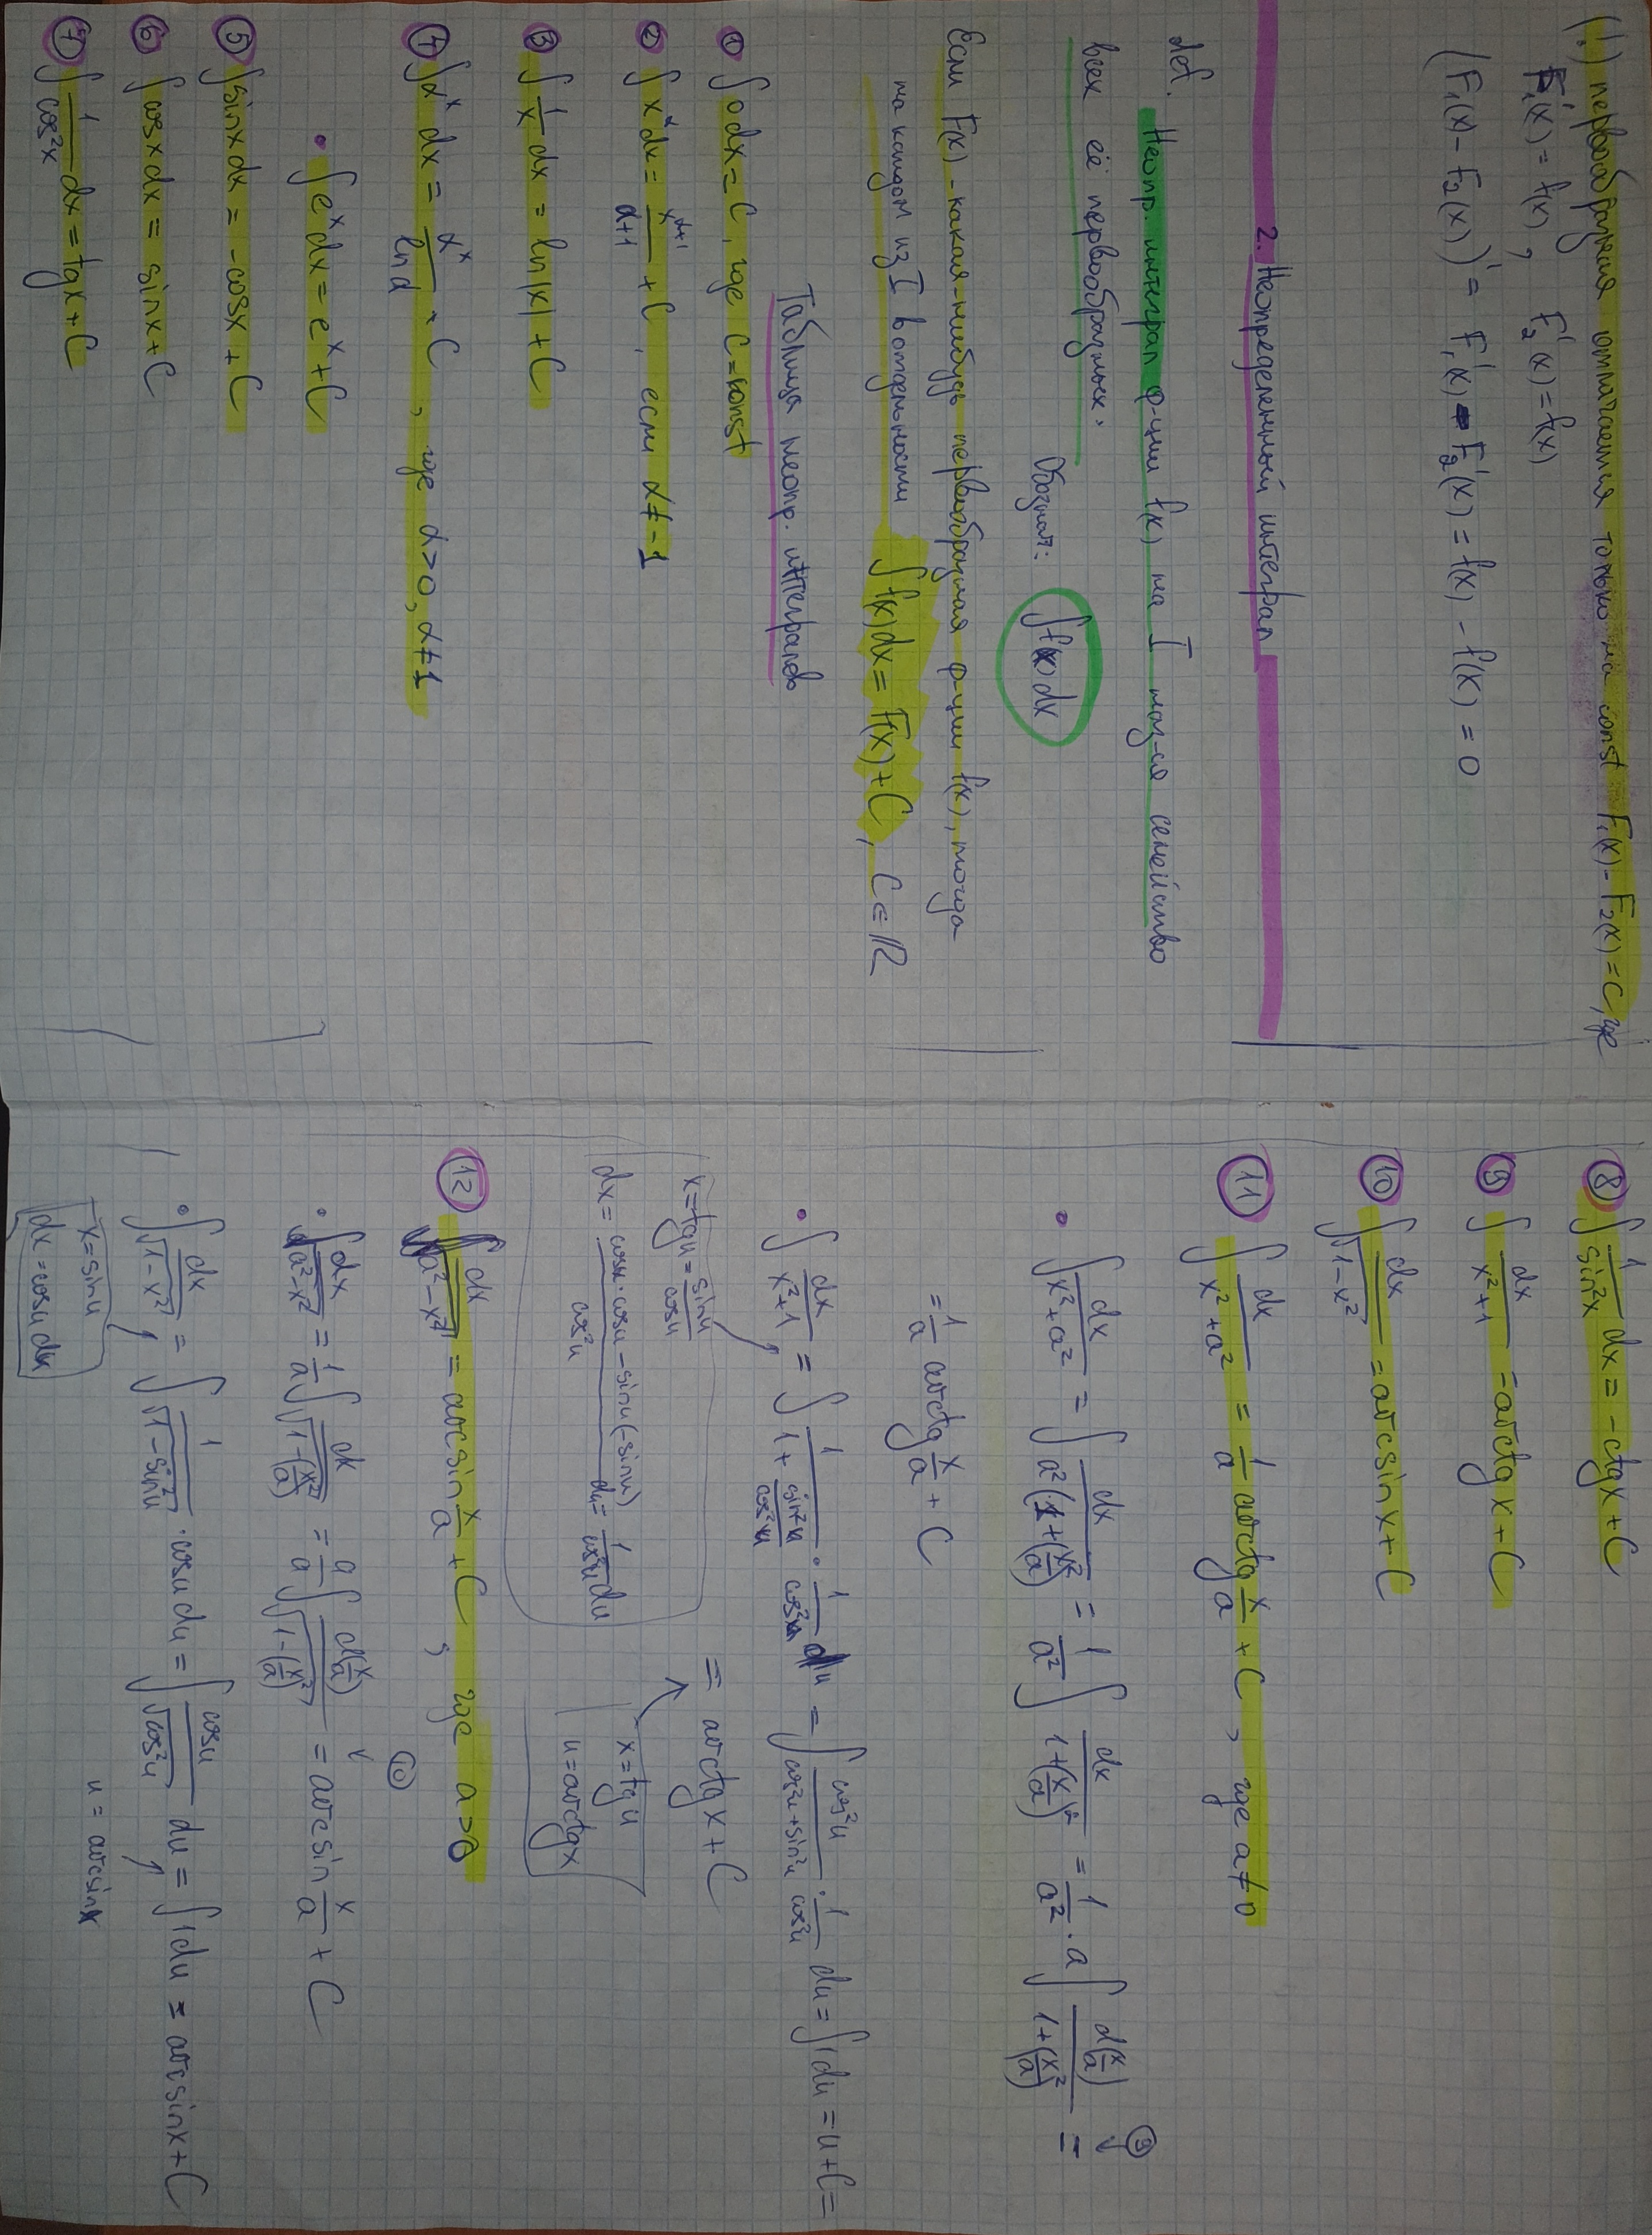 (!) первообразная отличается только на const F₁(x) - F₂(x) = C, где
F₁'(x) = f(x), F₂'(x) = f(x)
(F₁(x) - F₂(x))' = F₁'(x) - F₂'(x) = f(x) - f(x) = 0
2. Неопределенный интеграл
def. Неопр. интеграл ф-ции f(x) на I наз-ся семейство
всех её первообразных.
Обознач: ∫f(x)dx
Если F(x) - какая-нибудь первообразная ф-ции f(x), тогда
на каждом из I в отдельности ∫f(x)dx = F(x) + C, C ∈ ℝ
Таблица неопр. интегралов
① ∫0dx = C, где C = const
② ∫x^α dx = x^(α+1)/(α+1) + C, если α ≠ -1
③ ∫ 1/x dx = ln|x| + C
④ ∫α^x dx = α^x/ln α + C, где α > 0, α ≠ 1
• ∫e^x dx = e^x + C
⑤ ∫sinx dx = -cosx + C
⑥ ∫cosx dx = sinx + C
⑦ ∫ 1/cos²x dx = tgx + C
⑧ ∫ 1/sin²x dx = -ctgx + C
⑨ ∫ dx/(x²+1) = arctg x + C
⑩ ∫ dx/√(1-x²) = arcsin x + C
⑪ ∫ dx/(x²+a²) = 1/a arctg x/a + C, где a ≠ 0
• ∫ dx/(x²+a²) = ∫ dx/(a²(1+(x/a)²)) = 1/a² ∫ dx/(1+(x/a)²) = 1/a² · a ∫ d(x/a)/(1+(x/a)²) = ⑨
= 1/a arctg x/a + C
• ∫ dx/(x²+1) = ∫ 1/(1+sin²u/cos²u) · 1/cos²u du = ∫ cos²u/(cos²u+sin²u) · 1/cos²u du = ∫1du = u + C =
x = tg u = sinu/cosu
= arctg x + C
dx = (cosu·cosu - sinu(-sinu))/cos²u du = 1/cos²u du
x = tg u
u = arctg x
⑫ ∫ dx/√(a²-x²) = arcsin x/a + C, где a > 0
⑩
• ∫ dx/√(a²-x²) = 1/a ∫ dx/√(1-(x/a)²) = a/a ∫ d(x/a)/√(1-(x/a)²) = arcsin x/a + C
• ∫ dx/√(1-x²) = ∫ 1/√(1-sin²u) · cosu du = ∫ cosu/√cos²u du = ∫1du = arcsin x + C
x = sin u
u = arcsin x
dx = cosu du